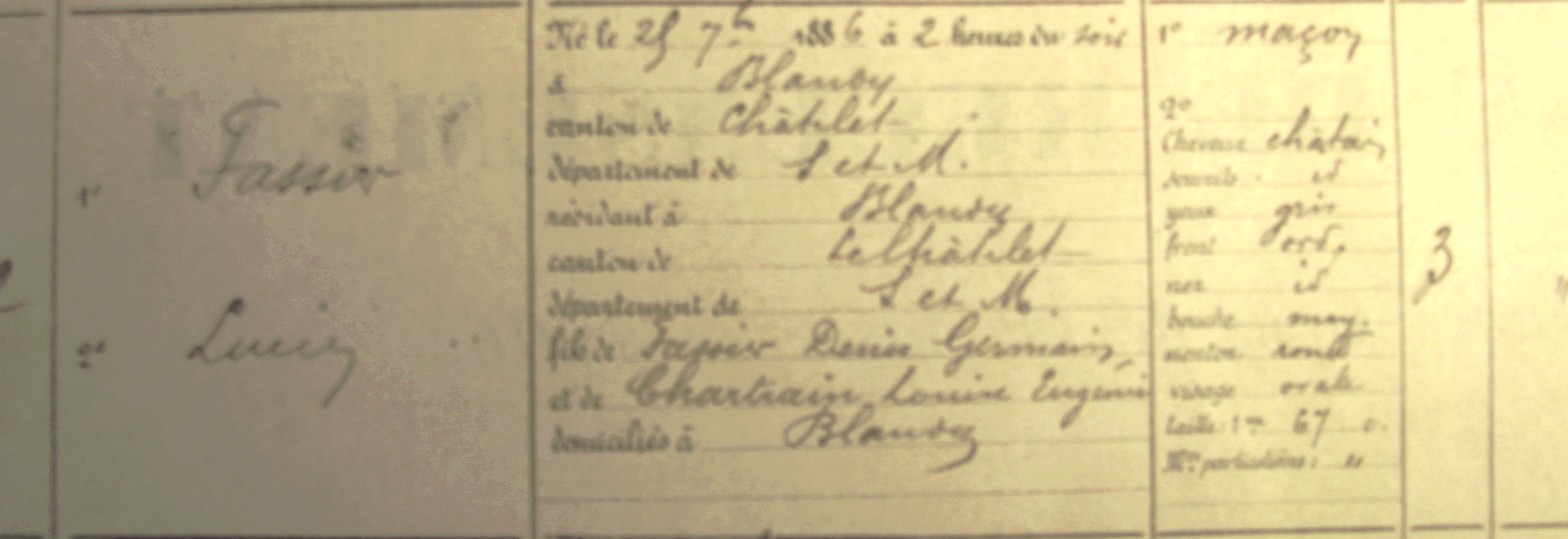 1°
Tassin
2°
Lucien
Né le 25 7bre 1886 à 2 heures du soir
à Blandy
canton de Châtelet
département de S et M.
résidant à Blandy
canton de Le Châtelet
département de S et M.
fils de Denis Germain,
et de Chartrain Louise Eugénie
domiciliés à Blandy
1° maçon
2°
Cheveux châtain
sourcils id
yeux gris
front ord.
nez id
bouche moy.
menton rond
visage ovale
taille: 1m 67 c.
Mes particulières: "
3